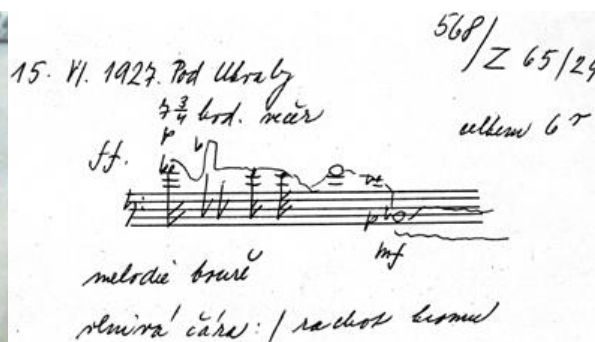 568/Z 65/24
15. VI. 1927. Pod Ukvaly
7 3/4 hod. večer
celkem 6 r
ff.
mf
melodie bouře
vlnivá čára: / rachot hromu